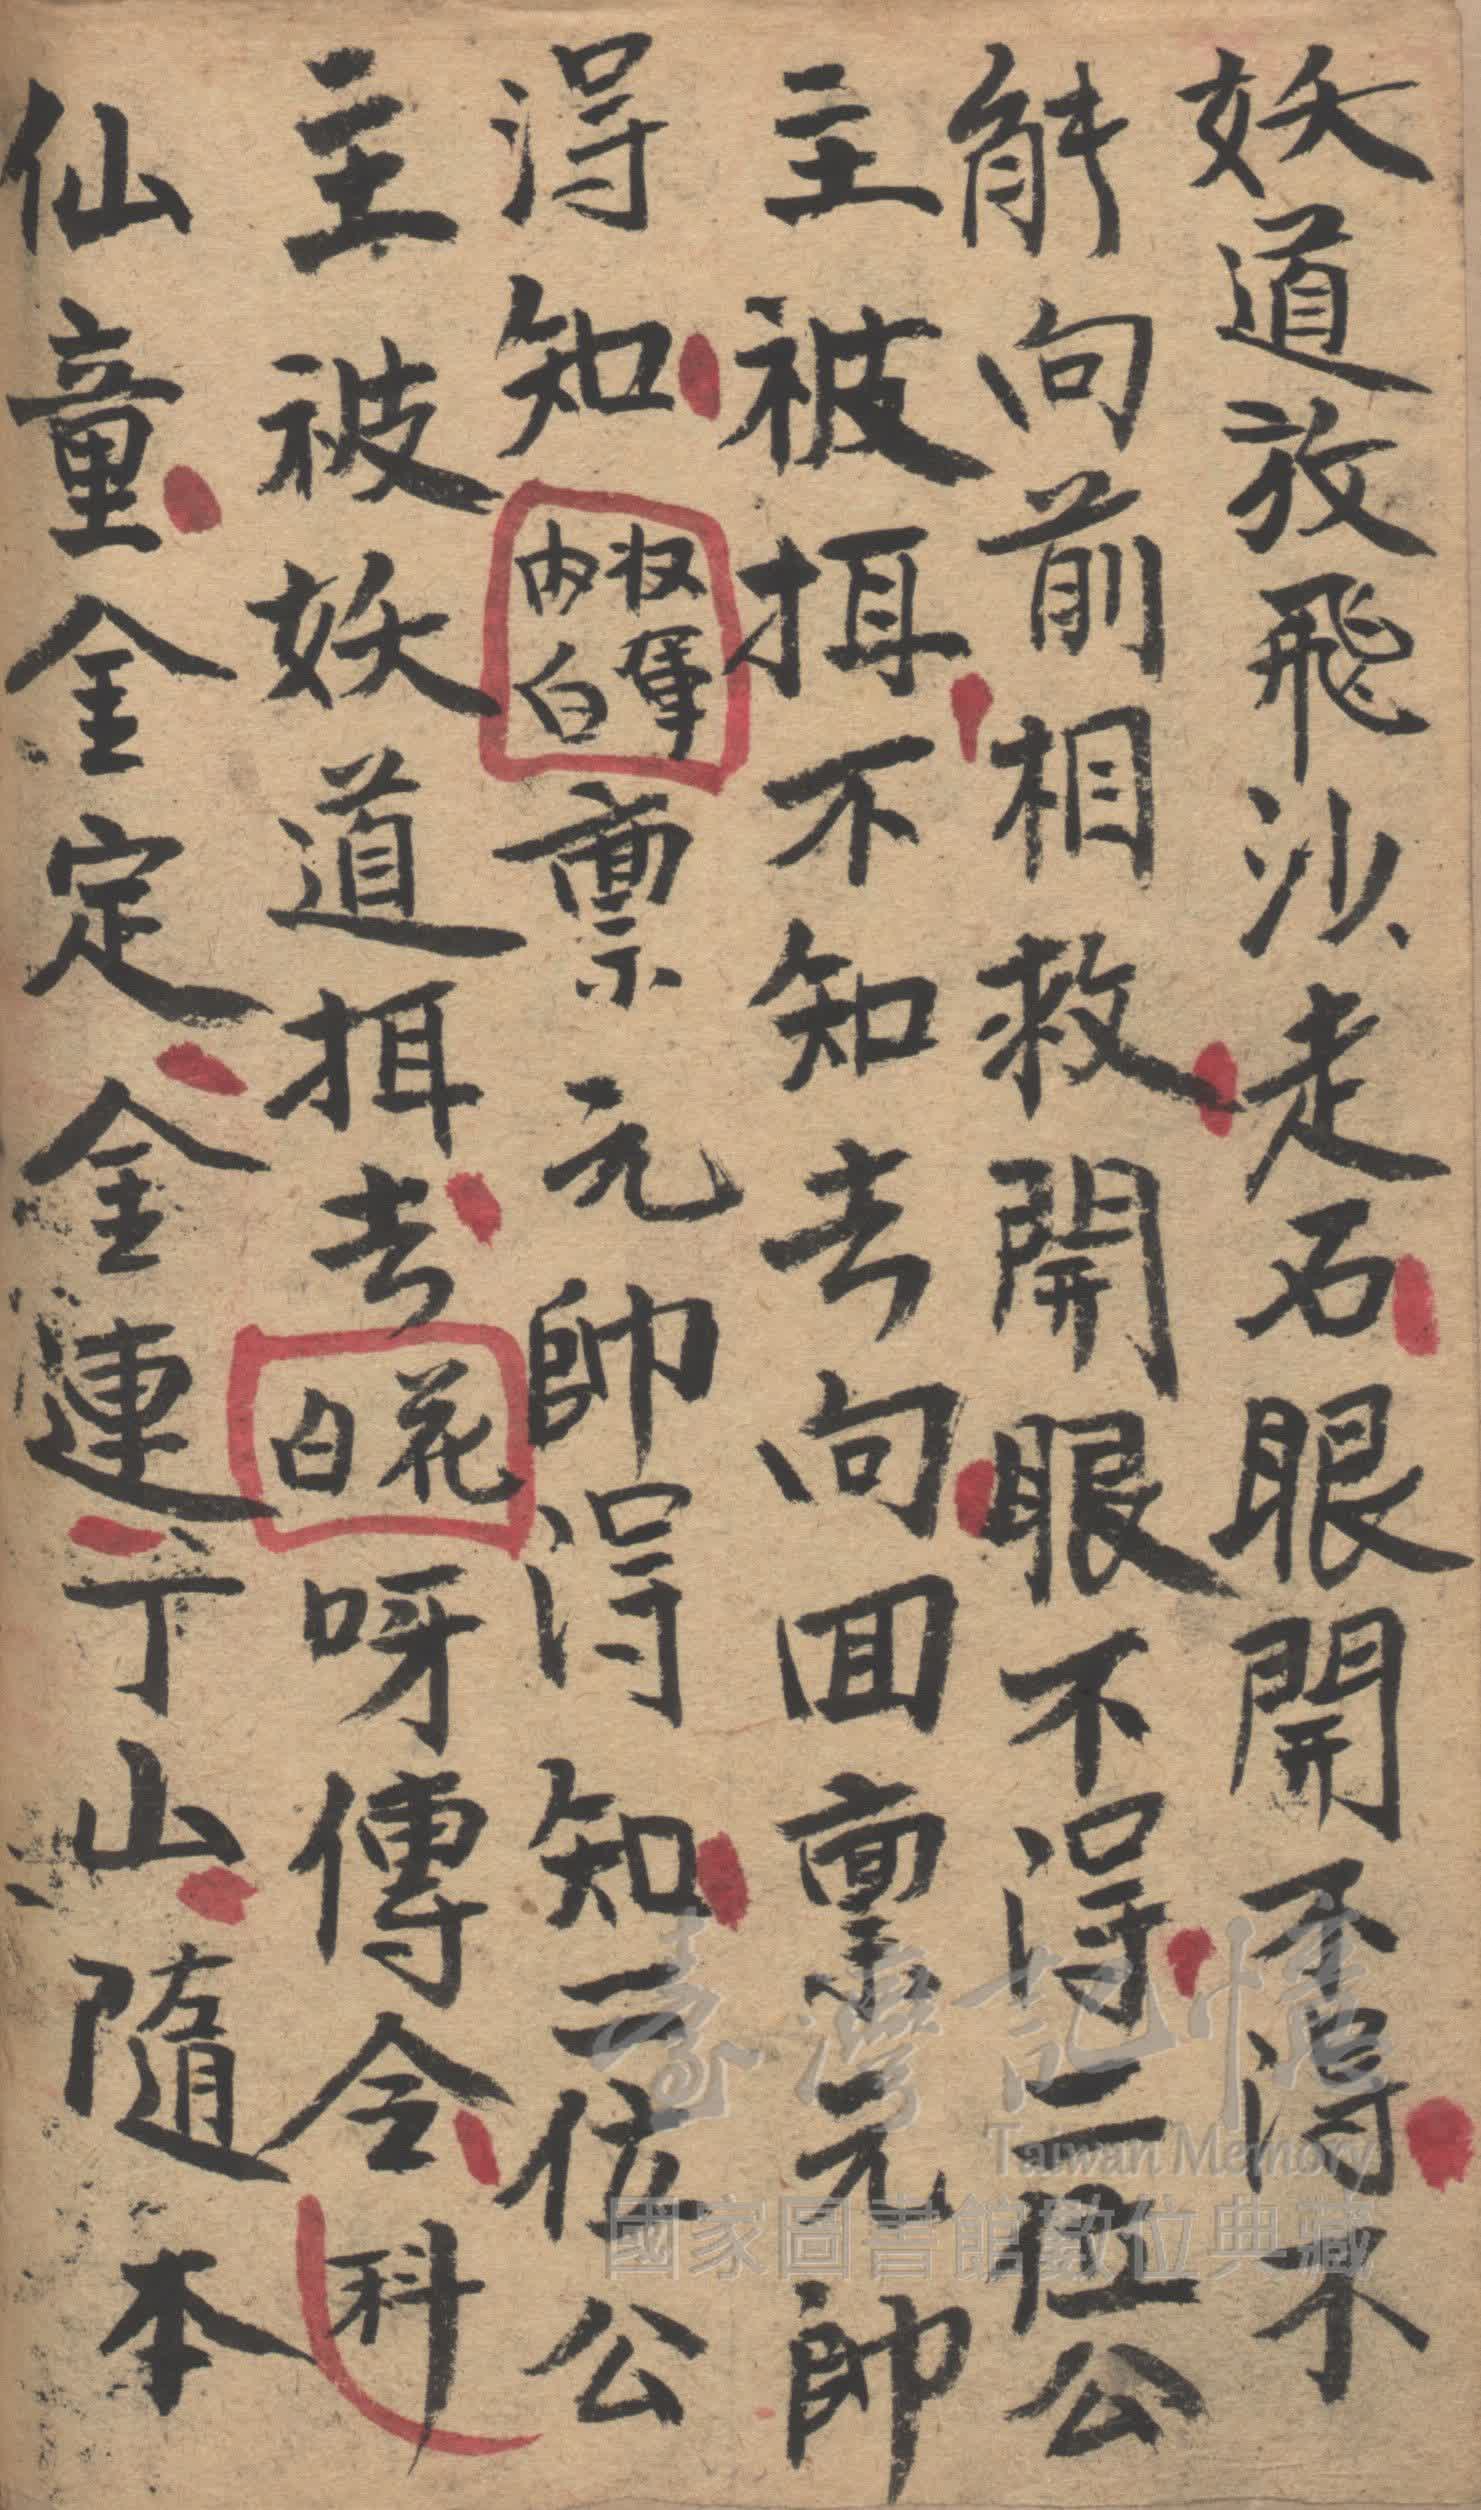 妖道放飛沙走石眼開不得不
能向前相救開眼不得二位公
主被抯不知去向回稟元帥
得知
权軍
内白
稟元帥得知二位公
主被妖道抯去
花
白
呀傳令科
仙童金定金連丁山隨本
臺灣記憶
Taiwan Memory
國家圖書館數位典藏